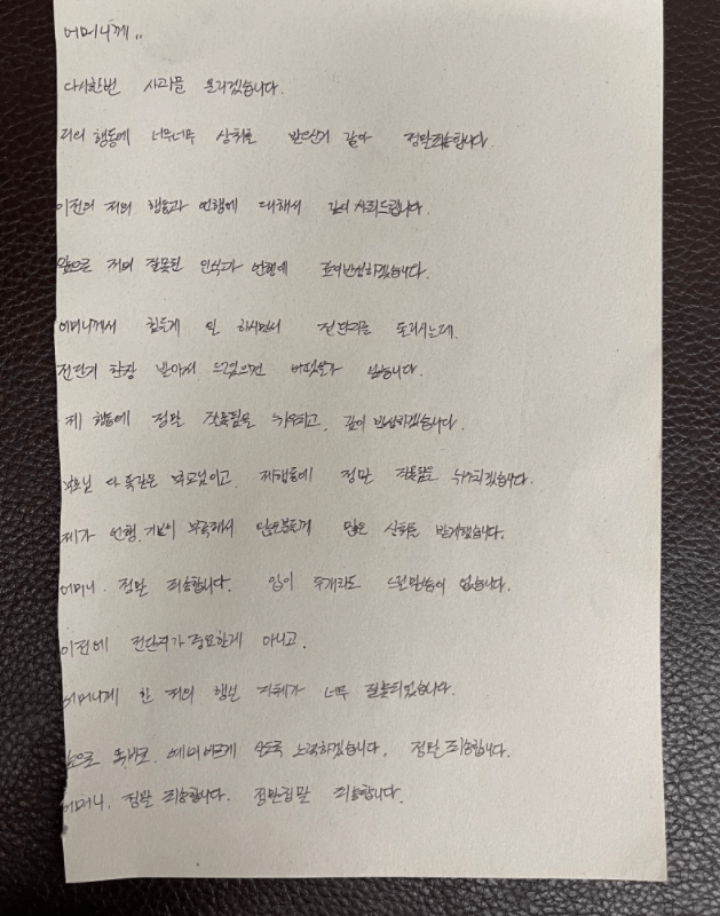 어머니께..
다시한번 사과를 올리겠습니다.
저의 행동에 너무너무 상처를 받으신거 같아 정말죄송합니다.
이전의 저의 행동과 언행에 대해서 깊이 사죄드립니다.
앞으로 저의 잘못된 인식과 언행에 반성하겠습니다.
어머니께서 힘들게 일 하시면서 전단지를 돌리시는데,
전단지 한장 받아서 드렸으면 없습니다.
제 행동에 정말 잘못됨을 뉘우치고, 깊이 반성하겠습니다.
부모님 다 똑같은 부모님이고, 제행동에 정말 잘못됨을 뉘우치겠습니다.
제가 언행, 기본이 부족해서 많은 상처를 받게했습니다.
어머니, 정말 죄송합니다. 입이 두개라도 드릴말씀이 없습니다.
이전에 전단지가 중요한게 아니고,
어머니께 한 저의 행실 자체가 너무 잘못되었습니다.
앞으로 똑바로, 예의바르게 노력하겠습니다. 정말 죄송합니다.
어머니, 정말 죄송합니다. 정말정말 죄송합니다.